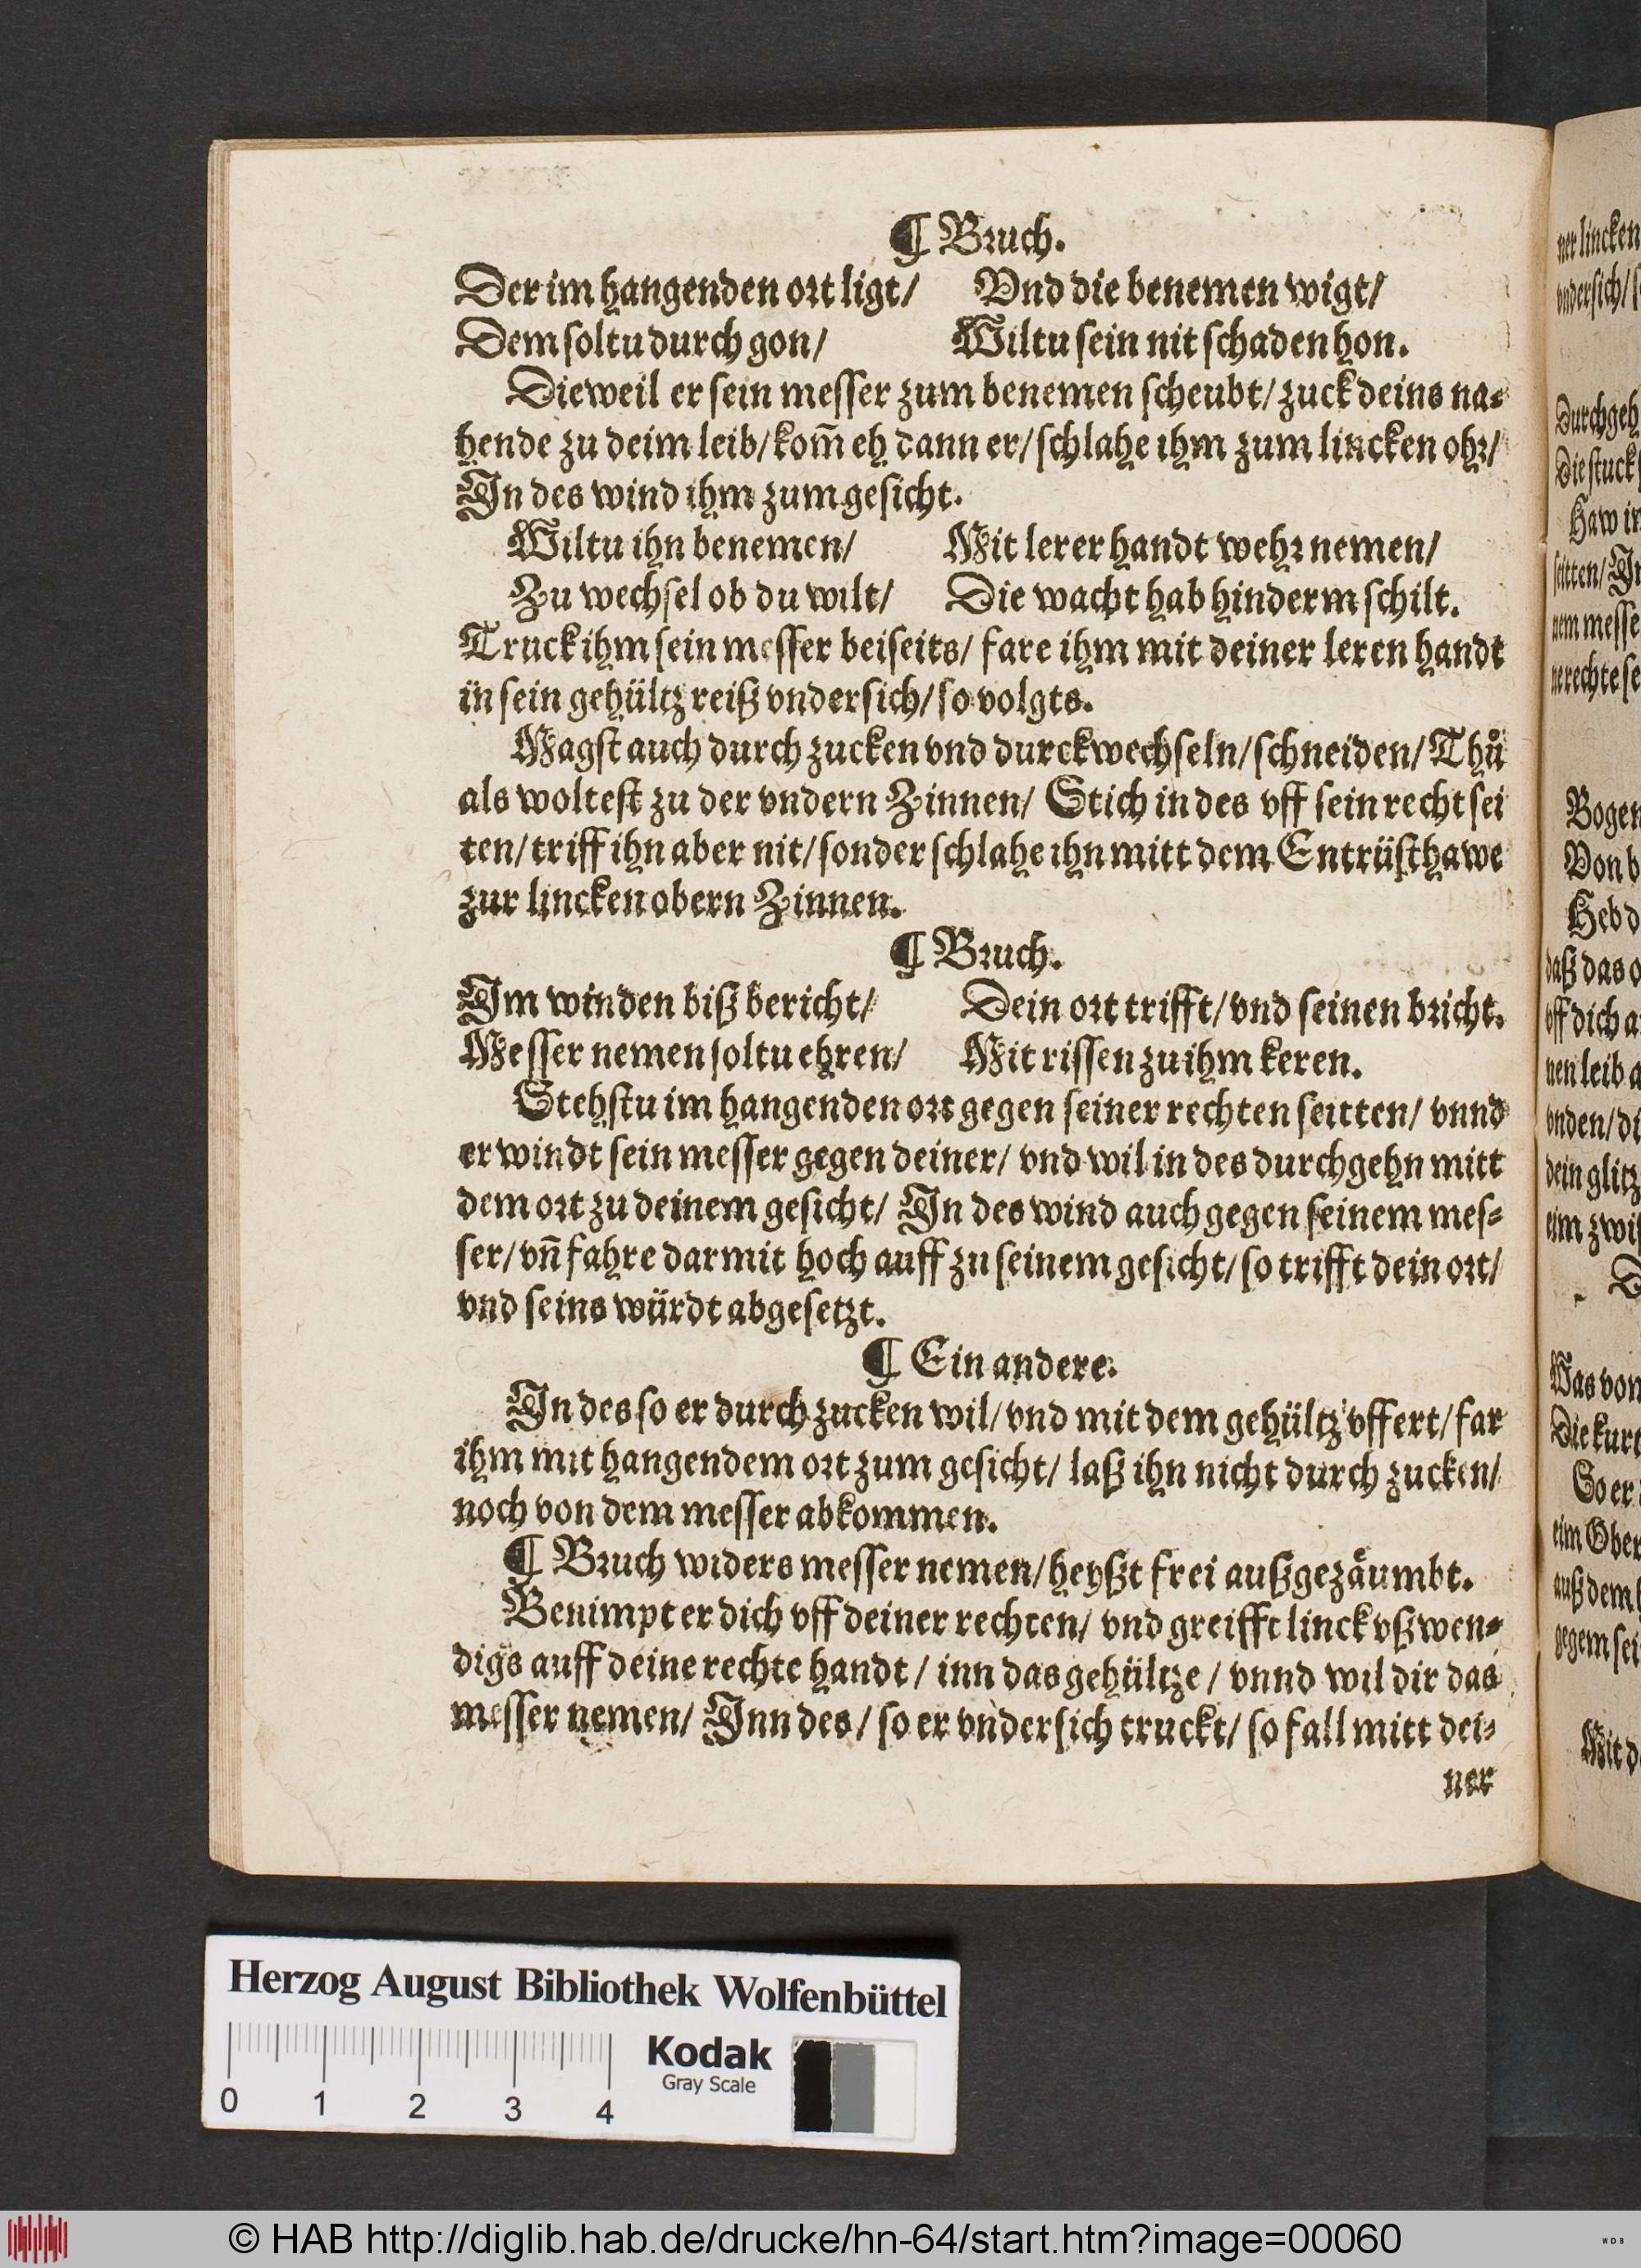 ¶ Bruch.
Der im hangenden ort ligt/ Vnd die benemen wigt/
Dem soltu durch gon/ Wiltu sein nit schaden hon.
Dieweil er sein messer zum benemen scheubt/ zuck deins na⸗
hende zu deim leib/ kom̃ eh dann er/ schlahe ihm zum lincken ohr/
In des wind ihm zum gesicht.
Wiltu ihn benemen/ Mit lerer handt wehr nemen/
Zu wechsel ob du wilt/ Die wacht hab hinderm schilt.
Truck ihm sein messer beiseits/ fare ihm mit deiner leren handt
in sein gehültz reiß vndersich/ so volgts.
Magst auch durch zucken vnd durckwechseln/ schneiden/ Thů
als woltest zu der vndern Zinnen/ Stich in des vff sein recht sei
ten/ triff ihn aber nit/ sonder schlahe ihn mitt dem Entrüsthawe
zur lincken obern Zinnen.
¶ Bruch.
Im winden biß bericht/ Dein ort trifft/ vnd seinen bricht.
Messer nemen soltu ehren/ Mit rissen zu ihm keren.
Stehstu im hangenden ort gegen seiner rechten seitten/ vnnd
er windt sein messer gegen deiner/ vnd wil in des durchgehn mitt
dem ort zu deinem gesicht/ In des wind auch gegen seinem mes⸗
ser/ vñ fahre darmit hoch auff zu seinem gesicht/ so trifft dein ort/
vnd seins würdt abgesetzt.
¶ Ein andere.
In des so er durch zucken wil/ vnd mit dem gehültz vffert/ far
ihm mit hangendem ort zum gesicht/ laß ihn nicht durch zucken/
noch von dem messer abkommen.
¶ Bruch widers messer nemen/ heyßt frei außgezåumbt.
Benimpt er dich vff deiner rechten/ vnd greifft linck vßwen⸗
digs auff deine rechte handt / inn das gehültze / vnnd wil dir das
messer nemen/ Inn des / so er vndersich truckt/ so fall mitt dei⸗
ner
ner lincken
vndersich/
Durchgeh
Die stuck
Haw in
seitten/ In
nem messe
ne rechte se
Bogen
Von b
Heb d
daß das o
vff dich a
nen leib a
vnden/ di
dein glitz
eim zwi
D
Was von
Die kurt
So er
eim Ober
auß dem
gegem sei
Mit d
Herzog August Bibliothek Wolfenbüttel
Kodak
Gray Scale
0 1 2 3 4
© HAB http://diglib.hab.de/drucke/hn-64/start.htm?image=00060
WDB